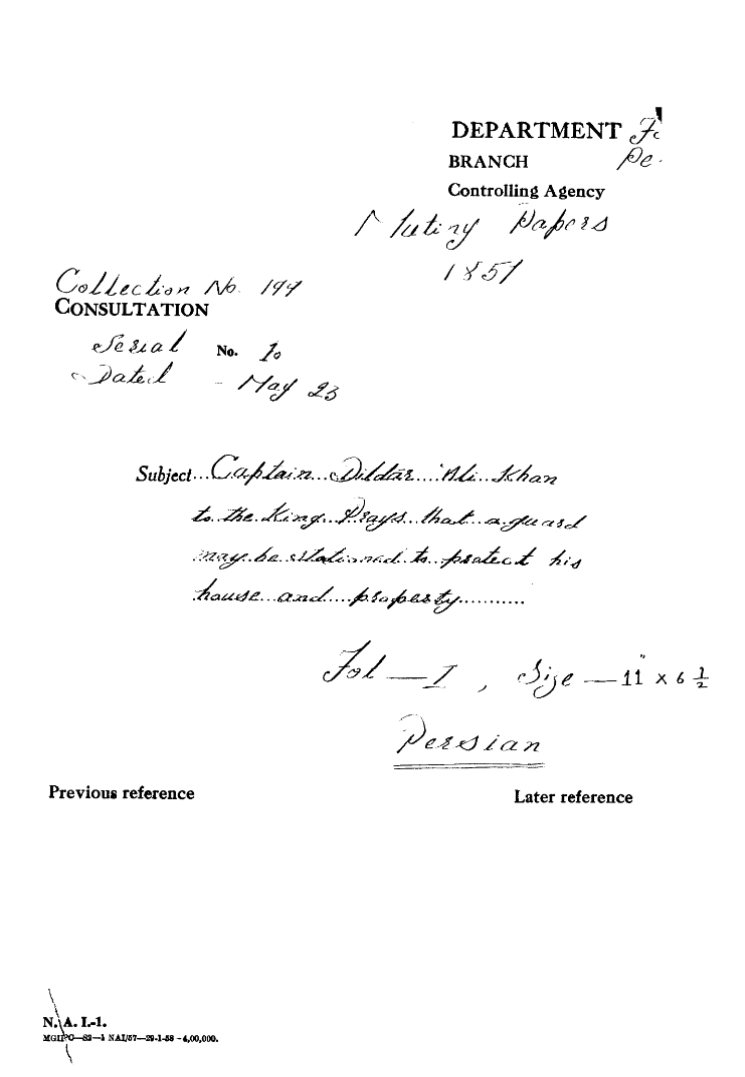 DEPARTMENT
BRANCH
Controlling Agency
Mutiny Papers
1857
Collection No. 199
CONSULTATION
Serial No. 10
Dated - May 23
Subject...Captain...Dildār....'Ali..Khan
to..the..King..Prays..that..a..guard
may..be..stationed..to..protect his
house...and....property...........
Fol — I , Size — 11" x 6 1/2
Persian
Previous reference
Later reference
N. A. I.-1.
MGIPC—82—1 NAI/57—29-1-58 -4,00,000.